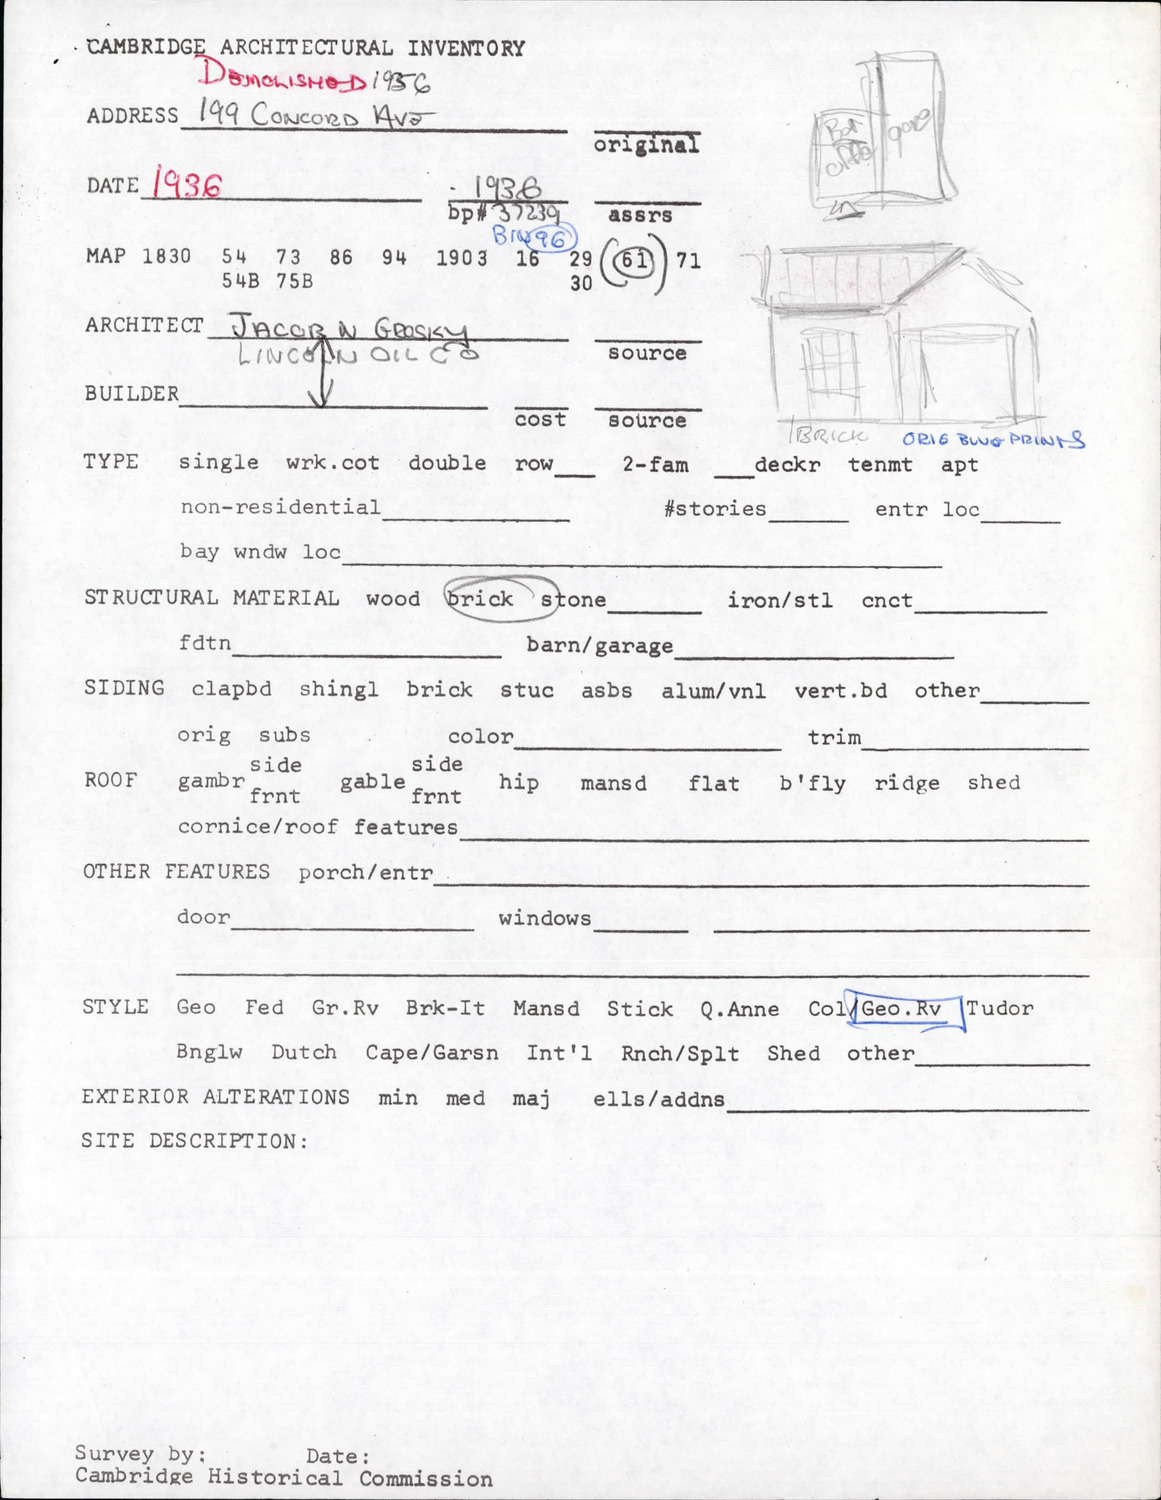 CAMBRIDGE ARCHITECTURAL INVENTORY
DEMOLISHED 1956
ADDRESS 199 CONCORD AVE
original
DATE 1936 1936
bp# 37239 assrs
BIN 96
MAP 1830 54 73 86 94 1903 16 29 61 71
54B 75B 30
ARCHITECT JACOB N GROSKY
LINCOLN OIL CO source
BUILDER
cost source
BRICK ORIG BLUE PRINTS
TYPE single wrk.cot double row 2-fam deckr tenmt apt
non-residential #stories entr loc
bay wndw loc
STRUCTURAL MATERIAL wood brick stone iron/stl cnct
fdtn barn/garage
SIDING clapbd shingl brick stuc asbs alum/vnl vert.bd other
orig subs color trim
side side
ROOF gambr gable hip mansd flat b'fly ridge shed
frnt frnt
cornice/roof features
OTHER FEATURES porch/entr
door windows
STYLE Geo Fed Gr.Rv Brk-It Mansd Stick Q.Anne Col/Geo.Rv Tudor
Bnglw Dutch Cape/Garsn Int'l Rnch/Splt Shed other
EXTERIOR ALTERATIONS min med maj ells/addns
SITE DESCRIPTION:
Survey by: Date:
Cambridge Historical Commission